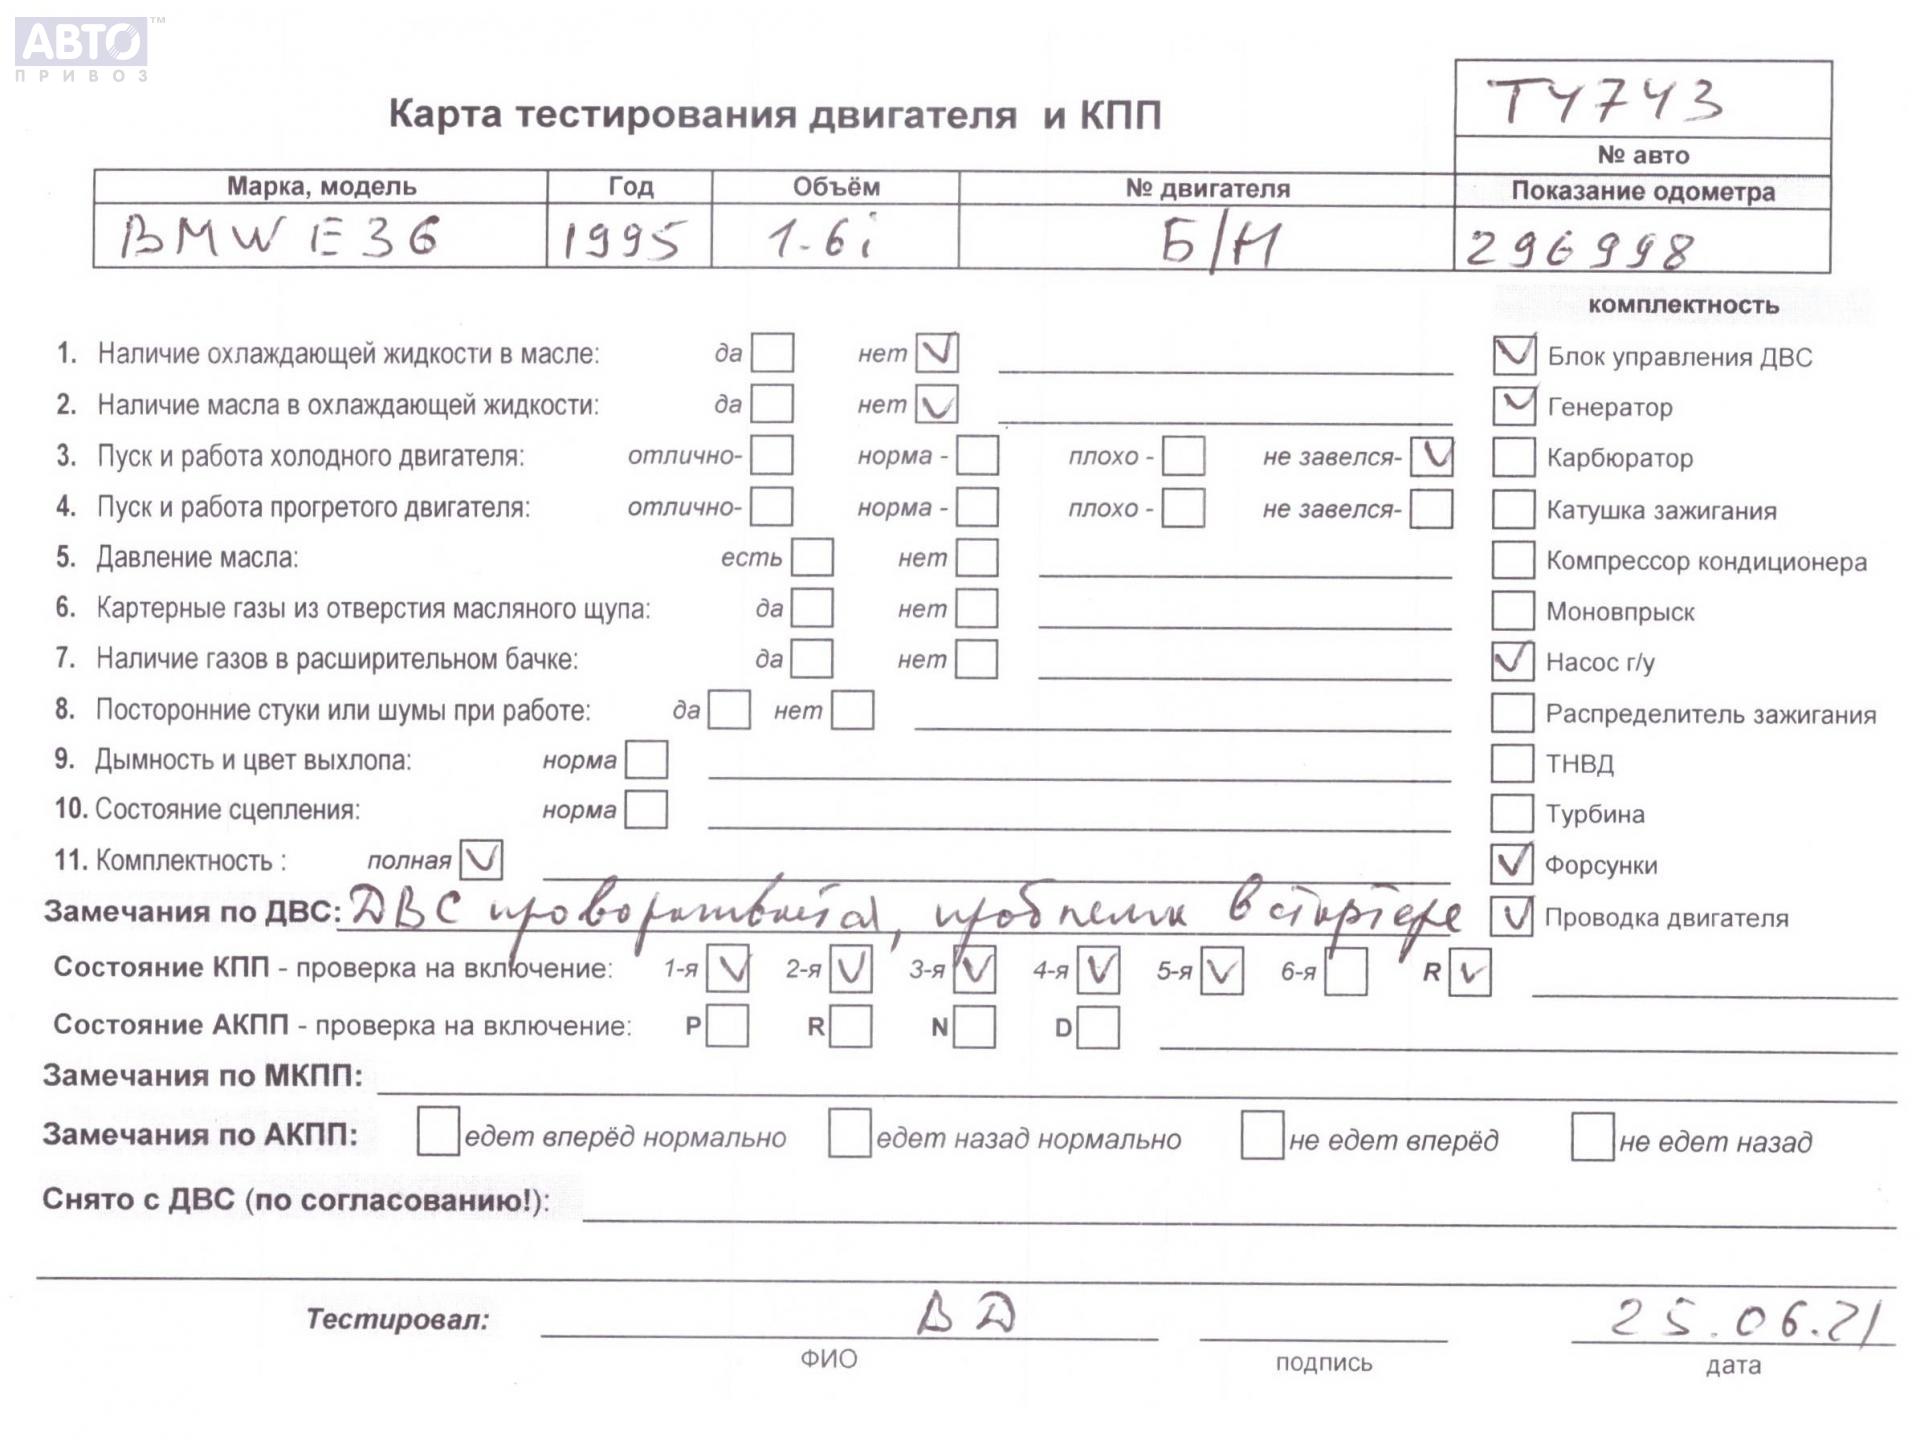 АВТО™
ПРИВОЗ
Т4743
Карта тестирования двигателя и КПП
№ авто
Марка, модель Год Объём № двигателя Показание одометра
BMW E36 1995 1.6i Б/Н 296998
комплектность
1. Наличие охлаждающей жидкости в масле: да нет ✓ ✓ Блок управления ДВС
2. Наличие масла в охлаждающей жидкости: да нет ✓ ✓ Генератор
3. Пуск и работа холодного двигателя: отлично- норма - плохо - не завелся- ✓ Карбюратор
4. Пуск и работа прогретого двигателя: отлично- норма - плохо - не завелся- Катушка зажигания
5. Давление масла: есть нет Компрессор кондиционера
6. Картерные газы из отверстия масляного щупа: да нет Моновпрыск
7. Наличие газов в расширительном бачке: да нет ✓ Насос г/у
8. Посторонние стуки или шумы при работе: да нет Распределитель зажигания
9. Дымность и цвет выхлопа: норма ТНВД
10. Состояние сцепления: норма Турбина
11. Комплектность : полная ✓ ✓ Форсунки
Замечания по ДВС: ДВС проворачивается, проблема в стартере ✓ Проводка двигателя
Состояние КПП - проверка на включение: 1-я ✓ 2-я ✓ 3-я ✓ 4-я ✓ 5-я ✓ 6-я R ✓
Состояние АКПП - проверка на включение: P R N D
Замечания по МКПП:
Замечания по АКПП: едет вперёд нормально едет назад нормально не едет вперёд не едет назад
Снято с ДВС (по согласованию!):
Тестировал: ВД 25.06.21
ФИО подпись дата